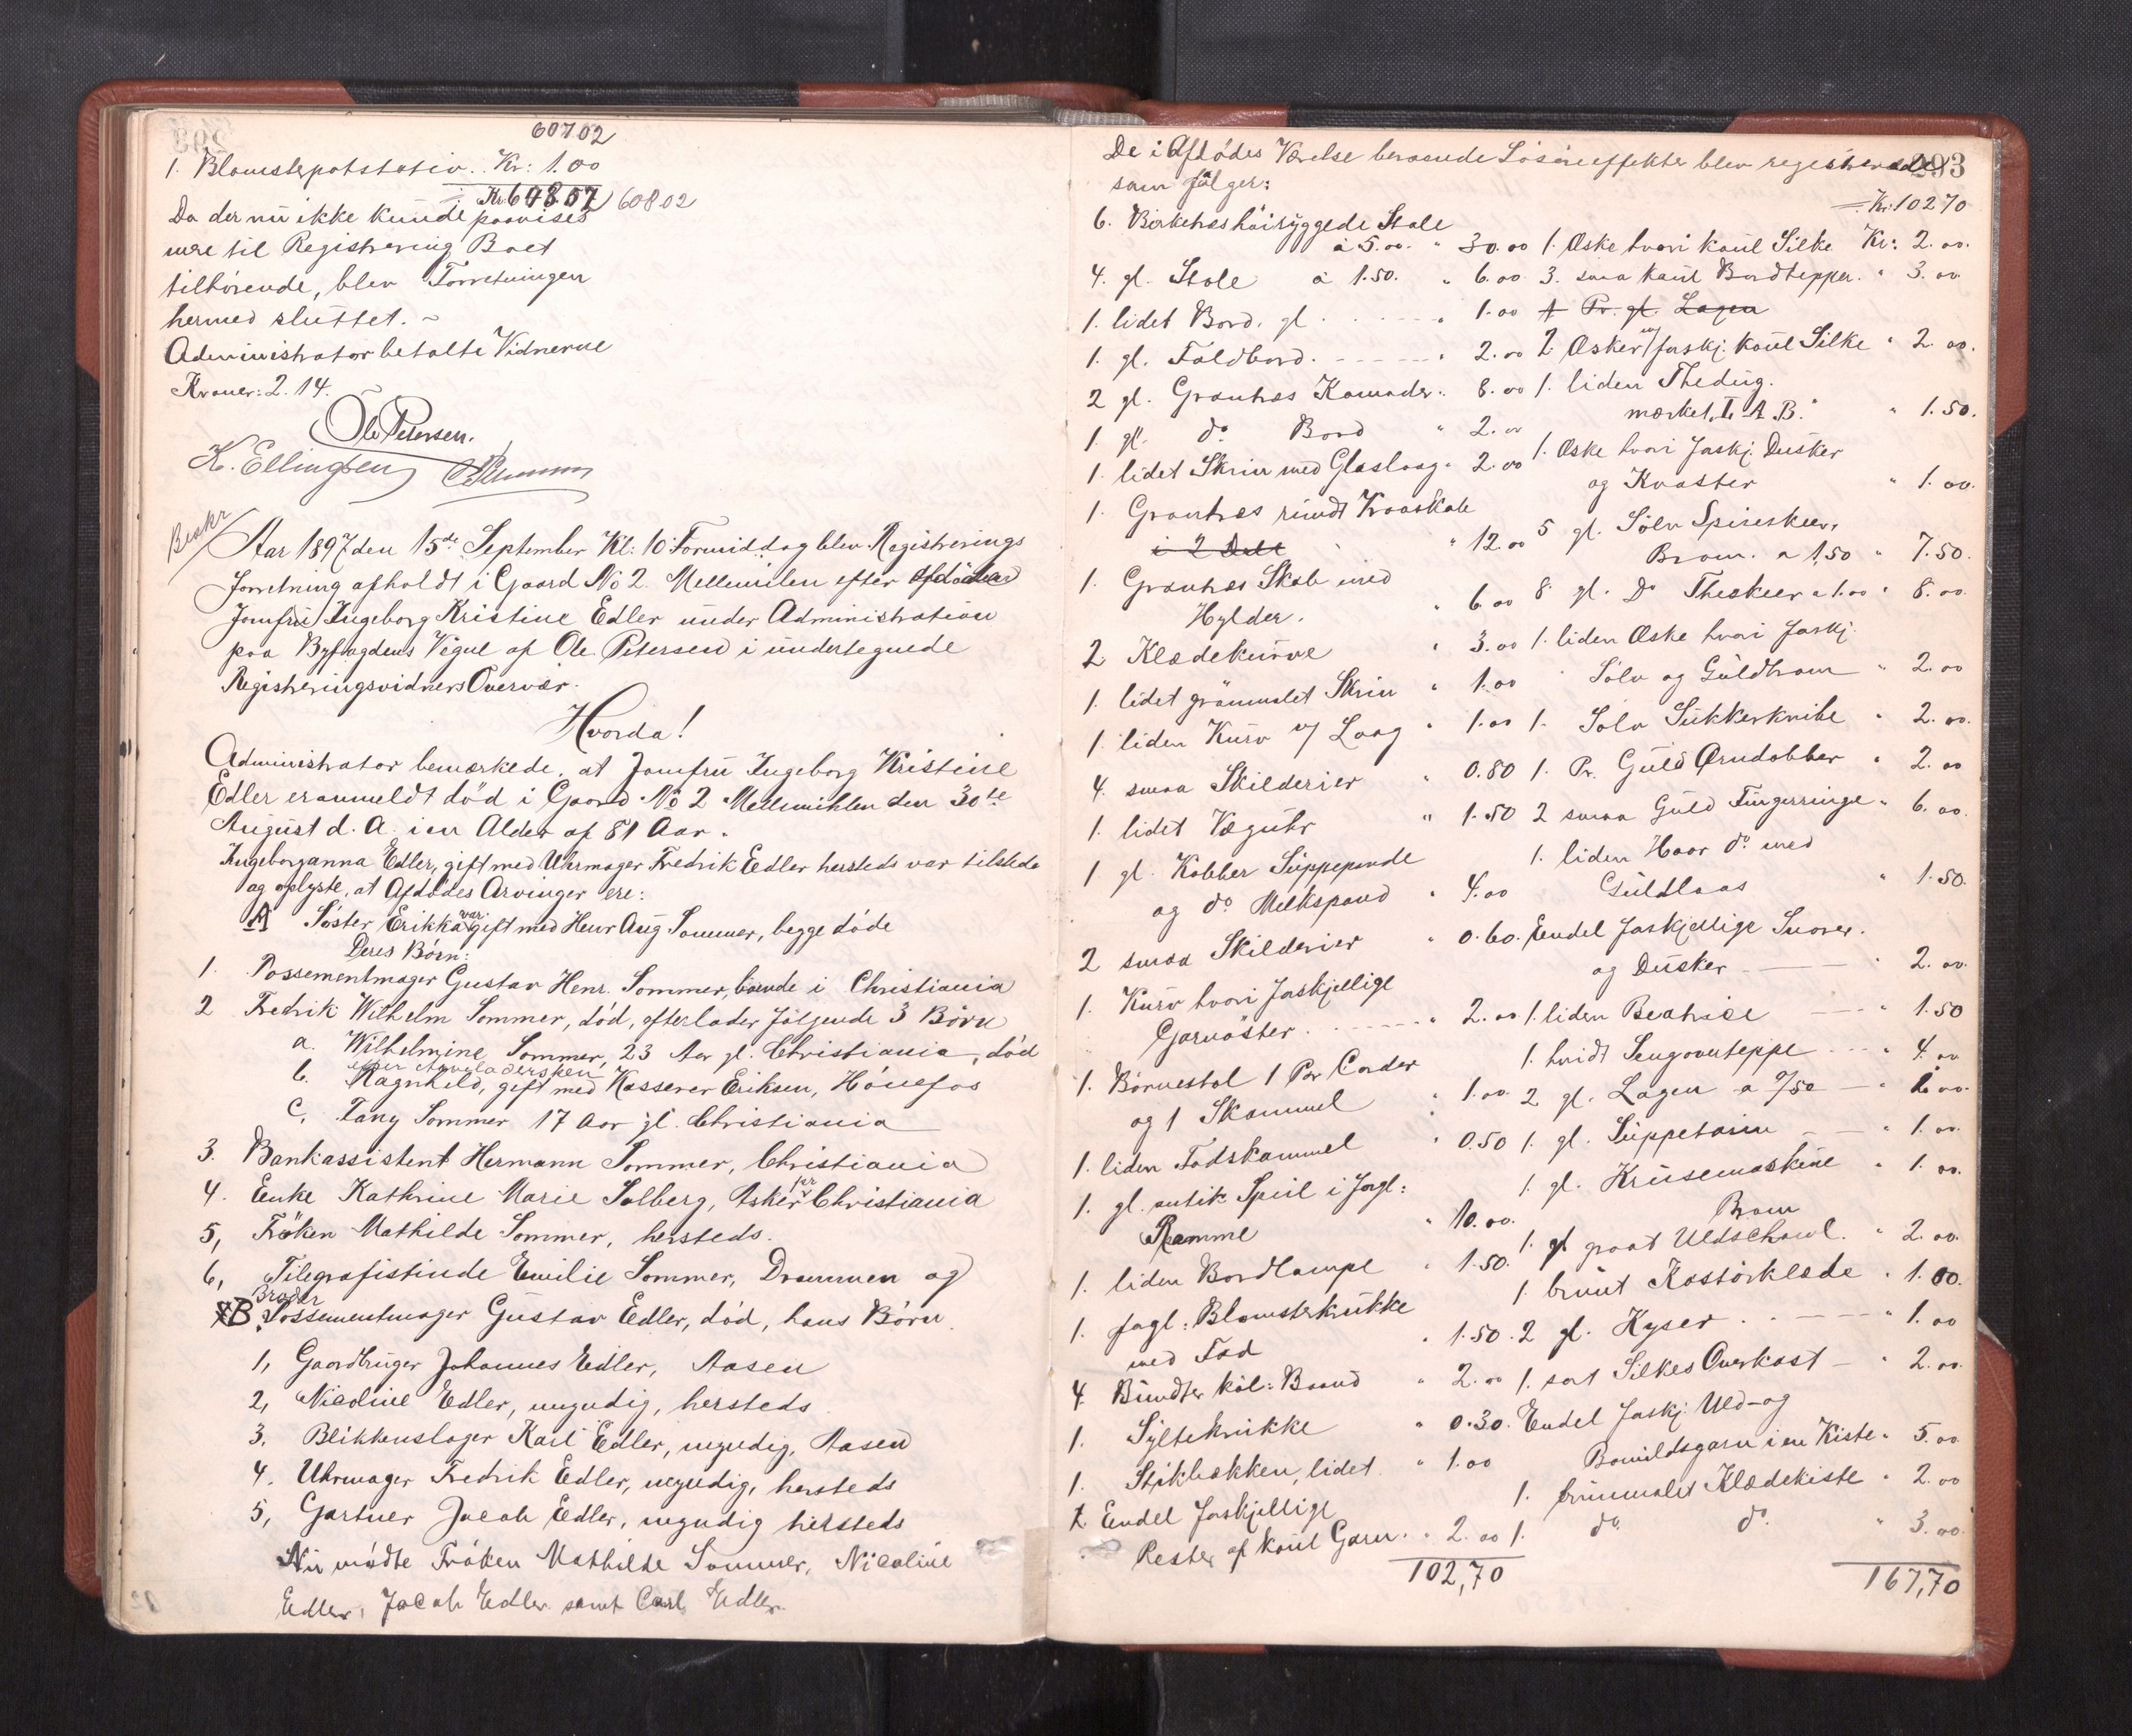 60702
1. Blomsterpotstativ. Kr: 1.00
Kr 60802 60802
Da der nu ikke kunde paavises
mere til Registrering Boet
tilhörende, blev Forretningen
hermed sluttet. ~
Administrator betalte Vidnerne
Kroner: 2.14.
Ole Petersen.
K. Ellingsen
Beskr
Aar 1897 den 15de September Kl: 10 Formiddag blev Registrerings
forretning afholdt i Gaard No 2 Mellemilen efter afdöde
Jomfru Ingeborg Kristine Edler under Administration
paa Byfogdens Vegne af Ole Petersen i undertegnede
Registreringsvidners Overvær.
Hvorda!
Administrator bemærkede, at Jomfru Ingeborg Kristine
Edler er anmeldt död i Gaard No 2 Mellemihlen den 30te
August d. A. i en Alder af 81 Aar.
Ingeborganna Edler, gift med Uhrmager Fredrik Edler hersteds var tilstede
og oplyste, at Afdödes Arvinger ere:
A Söster Erikka var gift med Henr Aug Sommer, begge döde
Deres Börn:
1. Possementmager Gustav Henr. Sommer, boende i Christiania
2 Fredrik Wilhelm Sommer, död, efterlader fölgende 3 Börn
a. Wilhelmine Sommer, 23 Aar gl. Christiania, död
efter Arveladersken
b. Ragnhild, gift med Kasserer Eriksen, Hönefos
c. Fany Sommer 17 Aar gl. Christiania
3. Bankassistent Hermann Sommer, Christiania
4. Enke Kathrine Marie Solberg, Asker pr Christiania
5, Fröken Mathilde Sommer, hersteds.
6, Telegrafistinde Emilie Sommer, Drammen og
Broder
B. Possementmager Gustav Edler, död, hans Börn
1, Gaardbruger Johannes Edler, Aasen
2, Nicoline Edler, myndig, hersteds
3. Blikkenslager Karl Edler, myndig, Aasen
4. Uhrmager Fredrik Edler, myndig, hersteds
5, Gartner Jacob Edler, myndig hersteds
Nu mödte Fröken Mathilde Sommer, Nicoline
Edler, Jacob Edler samt Carl Edler.
293
De i Afdödes Værelse beroende Lösöreeffekter blev registrerede
som fölger:
6. Birketræs höiryggede Stole
à 5.00. " 30.00
4. gl. Stole à 1.50. " 6.00
1. lidet Bord. gl " 1.00
1. gl. Foldbord. " 2.00
2 gl. Grantræs Komoder " 8.00
1. gl. do Bord " 2.00
1. lidet Skrin med Glaslaag " 2.00
1. Grantræs rundt Kroaskab
i 2 Dele " 12.00
1. Grantræs Skab med
Hylder. " 6.00
2 Klædekurve " 3.00
1. lidet grönmalet Skrin " 1.00
1. liden Kurv m/ Laag " 1.00
4. smaa Skilderier " 0.80
1. lidet Væguhr " 1.50
1 gl. Kobber Suppepande
og do Melkspand " 4.00
2 smaa Skilderier " 0.60.
1. Kurv hvori forskjellige
Garnöster " 2.00
1. Börnestol 1 Par Carder
og 1 Skammel " 1.00
1. liden Fodskammel " 0.50
1. gl. antik Speil i forgl:
Ramme " 10.00.
1. liden Bordlampe " 1.50.
1. forgl: Blomsterkrukke
med Fad " 1.50.
4 Bundter köl: Baand " 2.00
1. Syltekrukke " 0.30.
1. Stikbækken, lidet " 1.00
Endel forskjellige
Rester af koul Garn " 2.00
102,70
Kr: 102 70
1. Æske hvori koul Silke Kr: 2.00.
3. smaa koul Bordtepper. " 3.00
1 Pr. gl. Lagen
2. Æsker m/ forskj. koul Silke " 2.00.
1. liden Thedug.
mærket "I. A. B." " 1.50.
1. Æske hvori forskj. Dusker
og Kvaster " 1.00.
5 gl. Sölv Spiseskeer,
Bram. a 1,50 " 7.50.
8. gl. Do Theskeer a 1.00 " 8.00.
1. liden Æske hvori forskj.
Sölv og Guldkram " 2.00
1. Sölv Sukkerknibe " 2.00.
1. Pr. Guld Örndobber " 2.00
2 smaa Guld Fingerringe " 6.00.
1. liden Haar do med
Guldlaas " 1.50.
Endel forskjellige Snorer.
og Dusker " 2.00.
1. liden Beatrice " 1.50
1. hvidt Sengoverteppe " 4.00
2 gl. Lagen a 0/50 " 1.00.
1. gl. Suppeterin " 1.00
1. gl. Krusemaskine " 1.00.
Bram
1. gl graat Uldschawl. " 2.00.
1. brunt Kastörklæde " 1.00.
2 gl. Kyser " 1.00
1. sort Silkes Overkast " 2.00.
Endel forskj. Uld- og
Bomuldsgarn i en Kiste " 5.00
1. brunmalet Klædekiste " 2.00
1. do. do. " 3.00.
167,70